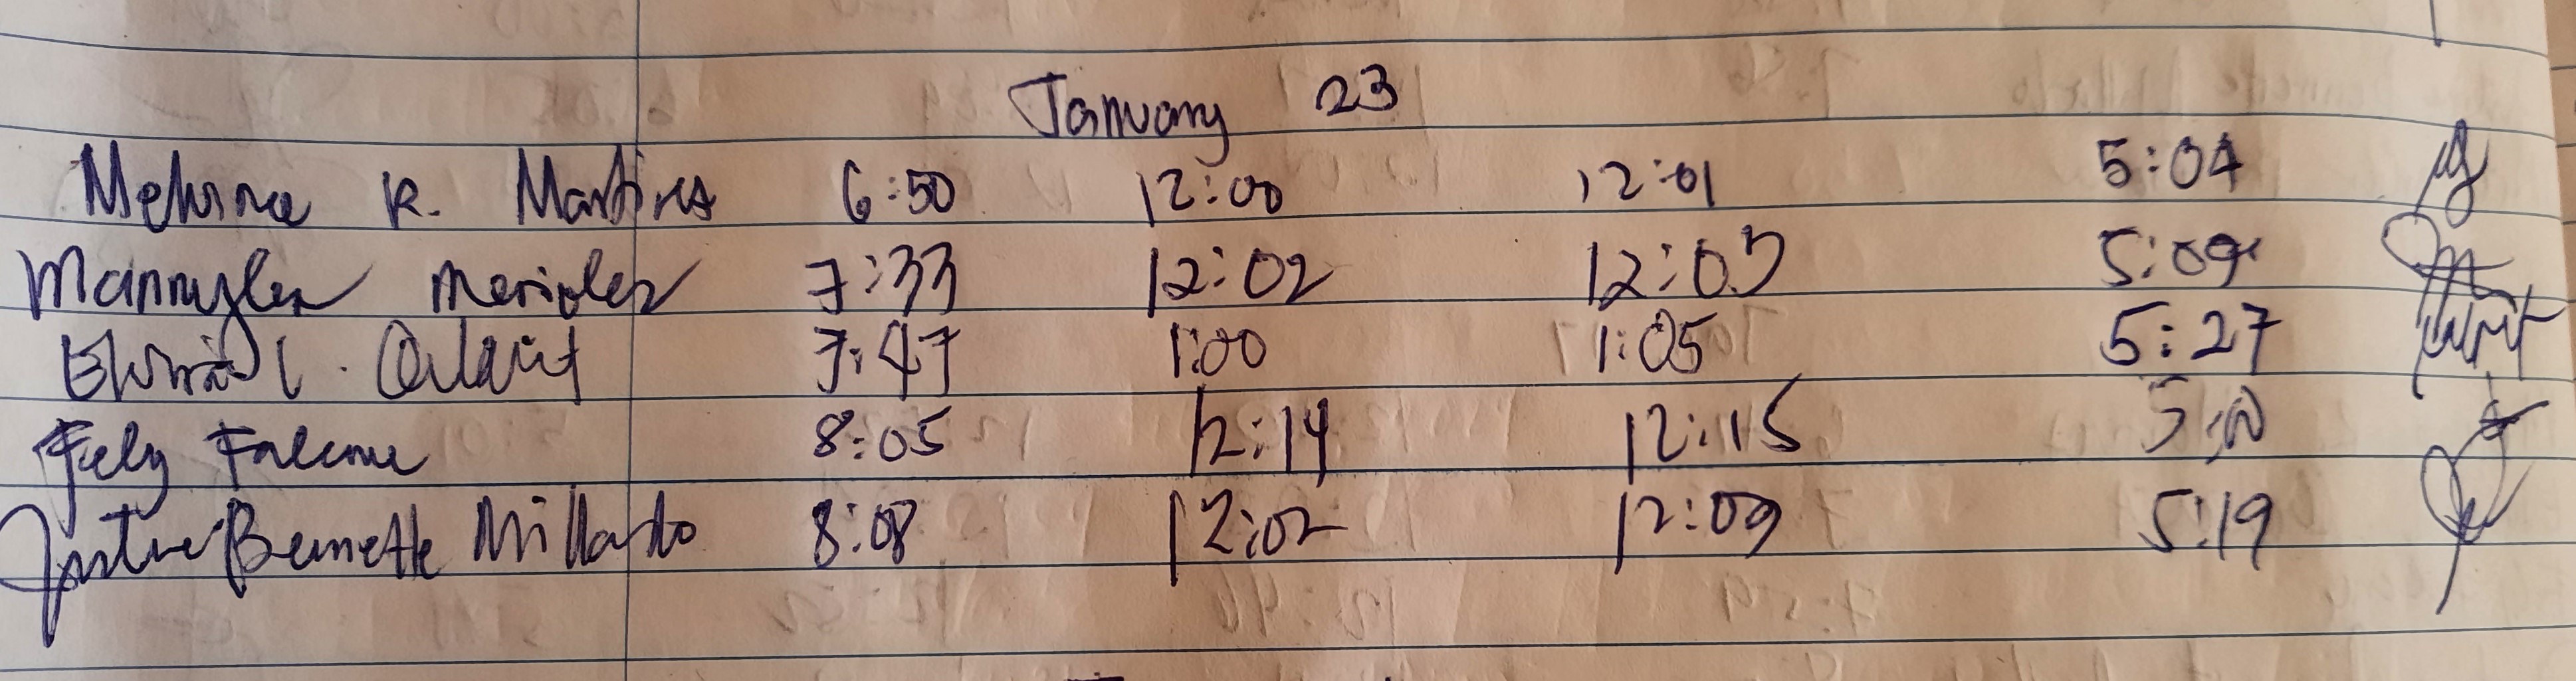 January 23
Melvina R. Martires 6:50 12:00 12:01 5:04
Mannylen Merioles 7:33 12:02 12:03 5:09
7:47 1:00 1:05 5:27
Fely Falcone 8:05 12:14 12:15
Justine Bernette Millardo 8:08 12:02 12:09 5:19